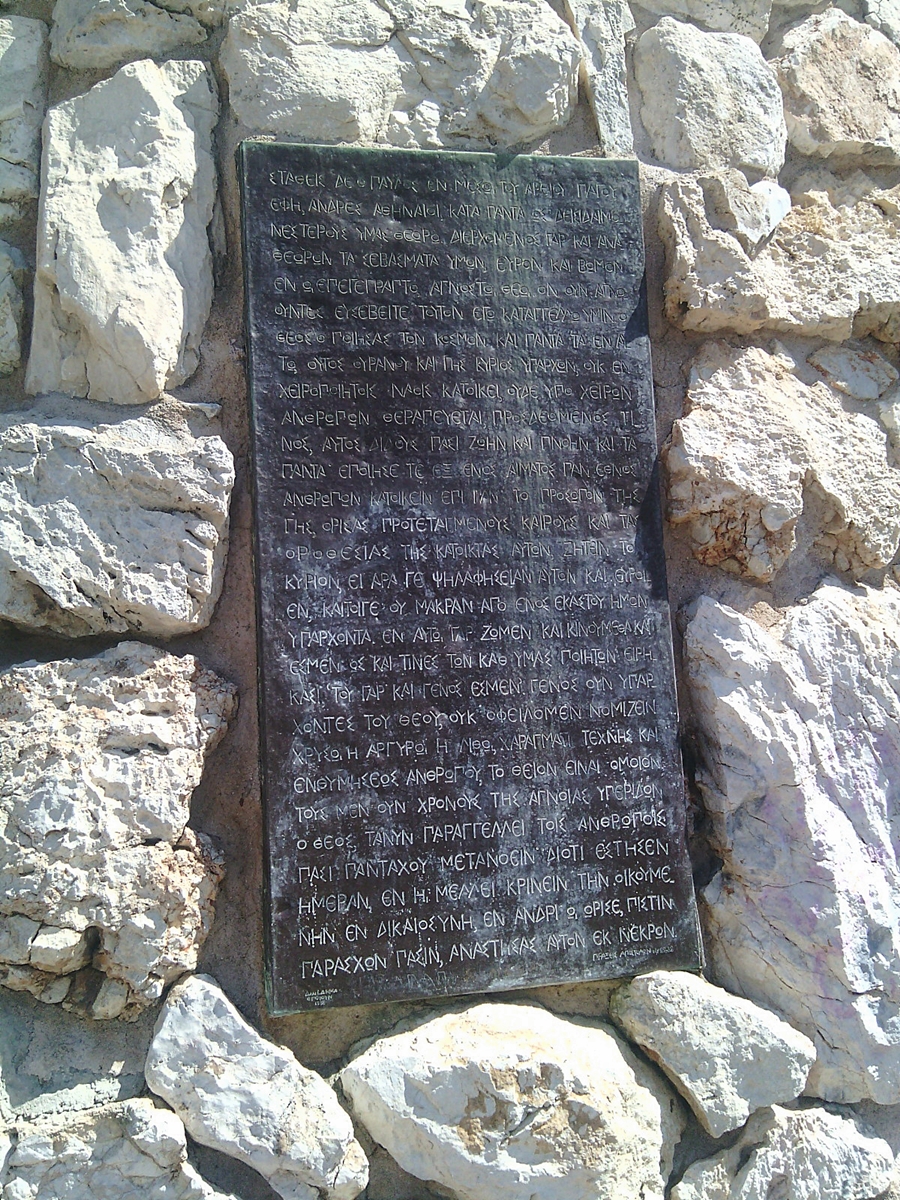 ΣΤΑΘΕΙΣ ΔΕ Ο ΠΑΥΛΟΣ ΕΝ ΜΕΣΩ ΤΟΥ ΑΡΕΙΟΥ ΠΑΓΟΥ
ΕΦΗ, ΑΝΔΡΕΣ ΑΘΗΝΑΙΟΙ, ΚΑΤΑ ΠΑΝΤΑ ΩΣ ΔΕΙΣΙΔΑΙΜΟ
ΝΕΣΤΕΡΟΥΣ ΥΜΑΣ ΘΕΩΡΩ. ΔΙΕΡΧΟΜΕΝΟΣ ΓΑΡ ΚΑΙ ΑΝΑ
ΘΕΩΡΩΝ ΤΑ ΣΕΒΑΣΜΑΤΑ ΥΜΩΝ, ΕΥΡΟΝ ΚΑΙ ΒΩΜΟΝ
ΕΝ Ω ΕΠΕΓΕΓΡΑΠΤΟ, ΑΓΝΩΣΤΩ ΘΕΩ. ΟΝ ΟΥΝ ΑΓΝΟ
ΟΥΝΤΕΣ ΕΥΣΕΒΕΙΤΕ, ΤΟΥΤΟΝ ΕΓΩ ΚΑΤΑΓΓΕΛΛΩ ΥΜΙΝ. Ο
ΘΕΟΣ Ο ΠΟΙΗΣΑΣ ΤΟΝ ΚΟΣΜΟΝ ΚΑΙ ΠΑΝΤΑ ΤΑ ΕΝ ΑΥ
ΤΩ, ΟΥΤΟΣ ΟΥΡΑΝΟΥ ΚΑΙ ΓΗΣ ΚΥΡΙΟΣ ΥΠΑΡΧΩΝ, ΟΥΚ ΕΝ
ΧΕΙΡΟΠΟΙΗΤΟΙΣ ΝΑΟΙΣ ΚΑΤΟΙΚΕΙ, ΟΥΔΕ ΥΠΟ ΧΕΙΡΩΝ
ΑΝΘΡΩΠΩΝ ΘΕΡΑΠΕΥΕΤΑΙ, ΠΡΟΣΔΕΟΜΕΝΟΣ ΤΙ
ΝΟΣ, ΑΥΤΟΣ ΔΙΔΟΥΣ ΠΑΣΙ ΖΩΗΝ ΚΑΙ ΠΝΟΗΝ ΚΑΙ ΤΑ
ΠΑΝΤΑ. ΕΠΟΙΗΣΕ ΤΕ ΕΞ ΕΝΟΣ ΑΙΜΑΤΟΣ ΠΑΝ ΕΘΝΟΣ
ΑΝΘΡΩΠΩΝ ΚΑΤΟΙΚΕΙΝ ΕΠΙ ΠΑΝ ΤΟ ΠΡΟΣΩΠΟΝ ΤΗΣ
ΓΗΣ, ΟΡΙΣΑΣ ΠΡΟΤΕΤΑΓΜΕΝΟΥΣ ΚΑΙΡΟΥΣ ΚΑΙ ΤΑΣ
ΟΡΟΘΕΣΙΑΣ ΤΗΣ ΚΑΤΟΙΚΙΑΣ ΑΥΤΩΝ, ΖΗΤΕΙΝ ΤΟΝ
ΚΥΡΙΟΝ, ΕΙ ΑΡΑ ΓΕ ΨΗΛΑΦΗΣΕΙΑΝ ΑΥΤΟΝ ΚΑΙ ΕΥΡΟΙ
ΕΝ, ΚΑΙΤΟΙΓΕ ΟΥ ΜΑΚΡΑΝ ΑΠΟ ΕΝΟΣ ΕΚΑΣΤΟΥ ΗΜΩΝ
ΥΠΑΡΧΟΝΤΑ. ΕΝ ΑΥΤΩ ΓΑΡ ΖΩΜΕΝ ΚΑΙ ΚΙΝΟΥΜΕΘΑ ΚΑΙ
ΕΣΜΕΝ, ΩΣ ΚΑΙ ΤΙΝΕΣ ΤΩΝ ΚΑΘ ΥΜΑΣ ΠΟΙΗΤΩΝ ΕΙΡΗ
ΚΑΣΙ, ΤΟΥ ΓΑΡ ΚΑΙ ΓΕΝΟΣ ΕΣΜΕΝ. ΓΕΝΟΣ ΟΥΝ ΥΠΑΡ
ΧΟΝΤΕΣ ΤΟΥ ΘΕΟΥ, ΟΥΚ ΟΦΕΙΛΟΜΕΝ ΝΟΜΙΖΕΙΝ
ΧΡΥΣΩ Η ΑΡΓΥΡΩ Η ΛΙΘΩ, ΧΑΡΑΓΜΑΤΙ ΤΕΧΝΗΣ ΚΑΙ
ΕΝΘΥΜΗΣΕΩΣ ΑΝΘΡΩΠΟΥ, ΤΟ ΘΕΙΟΝ ΕΙΝΑΙ ΟΜΟΙΟΝ.
ΤΟΥΣ ΜΕΝ ΟΥΝ ΧΡΟΝΟΥΣ ΤΗΣ ΑΓΝΟΙΑΣ ΥΠΕΡΙΔΩΝ
Ο ΘΕΟΣ, ΤΑΝΥΝ ΠΑΡΑΓΓΕΛΛΕΙ ΤΟΙΣ ΑΝΘΡΩΠΟΙΣ
ΠΑΣΙ ΠΑΝΤΑΧΟΥ ΜΕΤΑΝΟΕΙΝ ΔΙΟΤΙ ΕΣΤΗΣΕΝ
ΗΜΕΡΑΝ, ΕΝ Η ΜΕΛΛΕΙ ΚΡΙΝΕΙΝ ΤΗΝ ΟΙΚΟΥΜΕ
ΝΗΝ ΕΝ ΔΙΚΑΙΟΣΥΝΗ, ΕΝ ΑΝΔΡΙ Ω ΩΡΙΣΕ, ΠΙΣΤΙΝ
ΠΑΡΑΣΧΩΝ ΠΑΣΙΝ, ΑΝΑΣΤΗΣΑΣ ΑΥΤΟΝ ΕΚ ΝΕΚΡΩΝ.